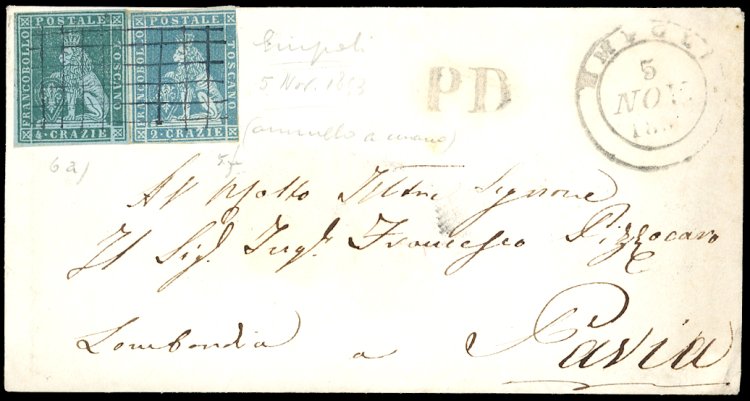 FRANCOBOLLO POSTALE TOSCANO
4 · CRAZIE
FRANCOBOLLO POSTALE TOSCANO
2 · CRAZIE
Empoli
5 Nov. 1853
(annullo a mano)
6a)
PD
EMPOLI
5
NOV.
Al Molto Illtre Signore
Il Sigr. Ingr. Francesco Pizzocaro
Lombardia a Pavia